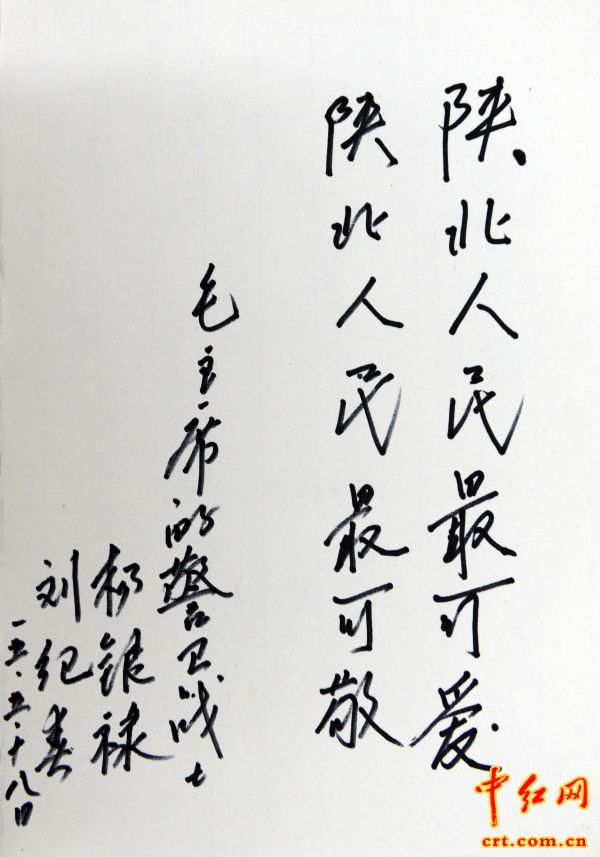 陕北人民最可爱
陕北人民最可敬
毛主席的警卫战士
杨银禄
刘纪春
一五·五·十八日
中红网
crt.com.cn